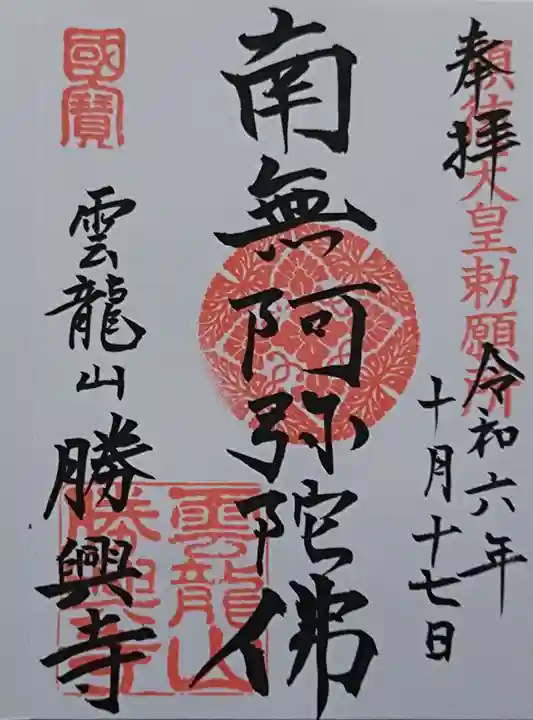 奉拝
順徳天皇勅願所
令和六年
十月十七日
南無阿弥陀佛
國寶
雲龍山勝興寺
雲龍山
勝興寺